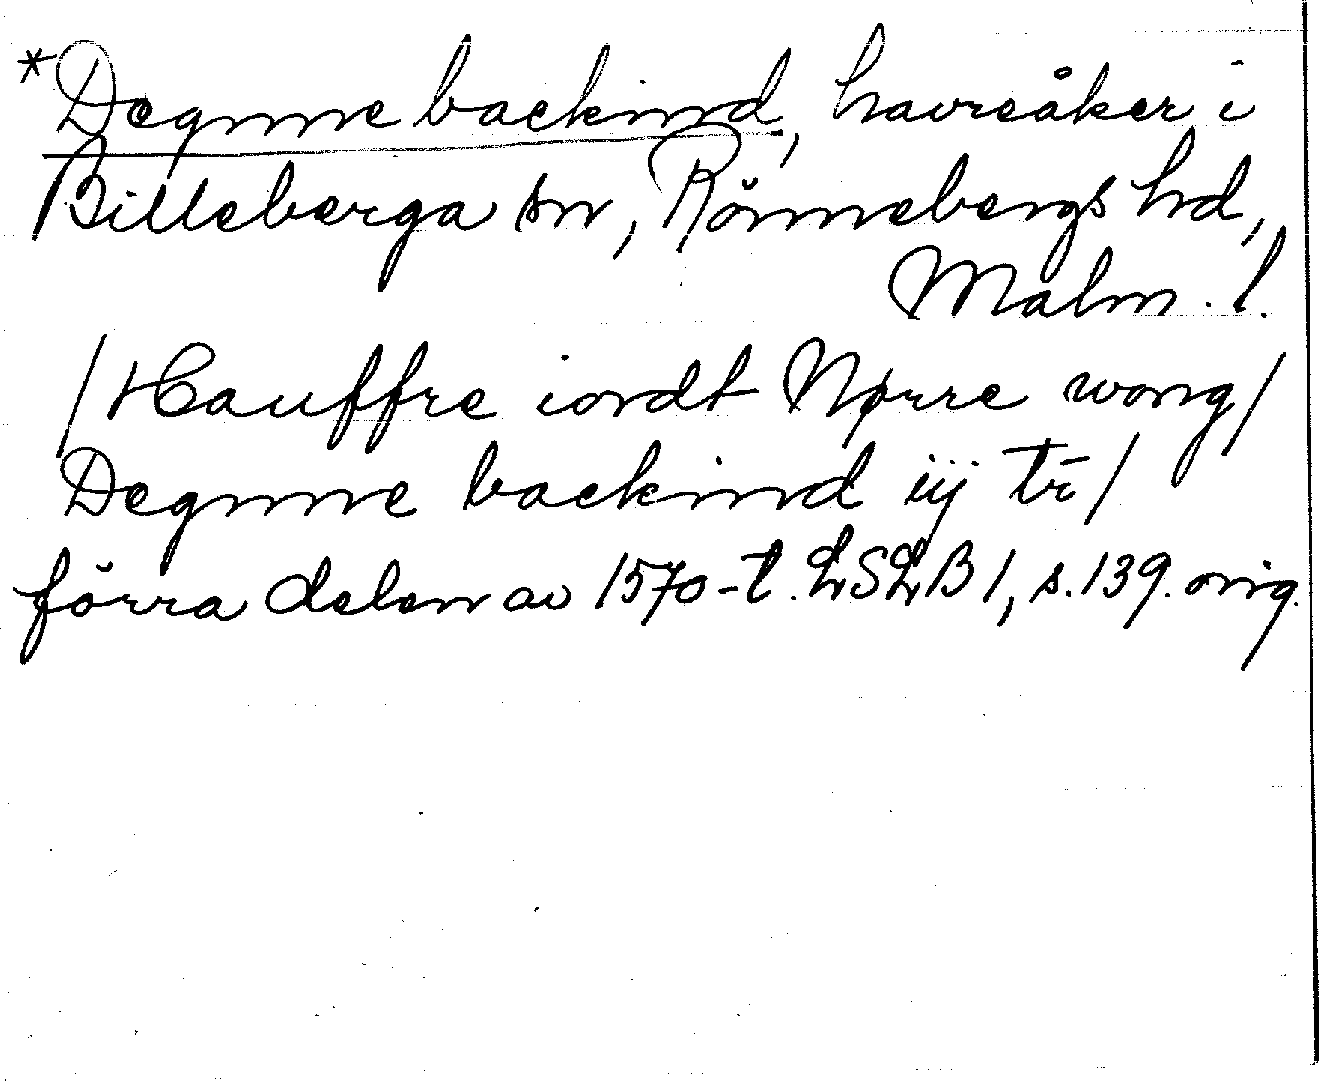 *Degnne backind, havreåker i
Billeberga sn, Rönnebergs hd,
Malm. l.
/Hauffre iordt Nørre wong/
Degnne backind iij tr̄/
förra delen av 1570-t. LSLB 1, s. 139. orig.